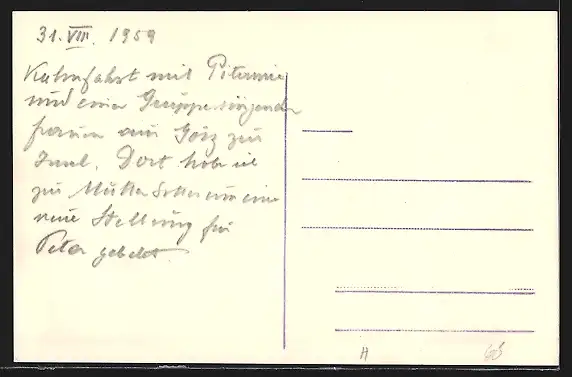 31. VIII. 1959
Kahnfahrt mit
und einer Gruppe singender
Frauen aus Görz zur
Insel. Dort habe ich
zur Mutter Gottes um eine
neue Stellung für
Peter gebetet.
H